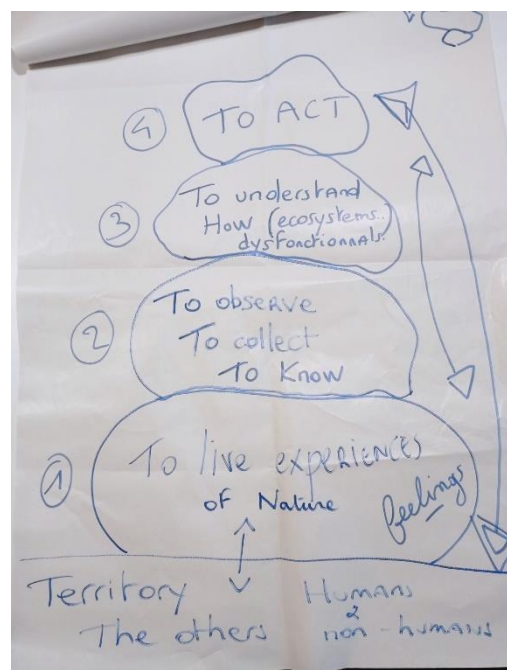 4 To ACT
3 To understand
How (ecosystems..
dysfonctionnals.
2 To observe
To collect
To Know
1 To live experiences
of Nature
feelings
Territory Humans
The others 2 non-humans